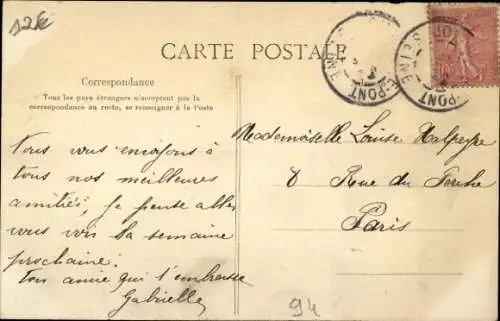 12e
CARTE POSTALE
Correspondance
Tous les pays étrangers n'acceptent pas la
correspondance au recto, se renseigner à la Poste
E-PONT
SEINE
E-PONT
10
Vous vous envoyons à
tous nos meilleures
amitiés, je pense aller
vous voir la semaine
prochaine.
Ton amie qui t'embrasse
Gabrielle
Mademoiselle Louise
8 Rue du Perche
Paris
94